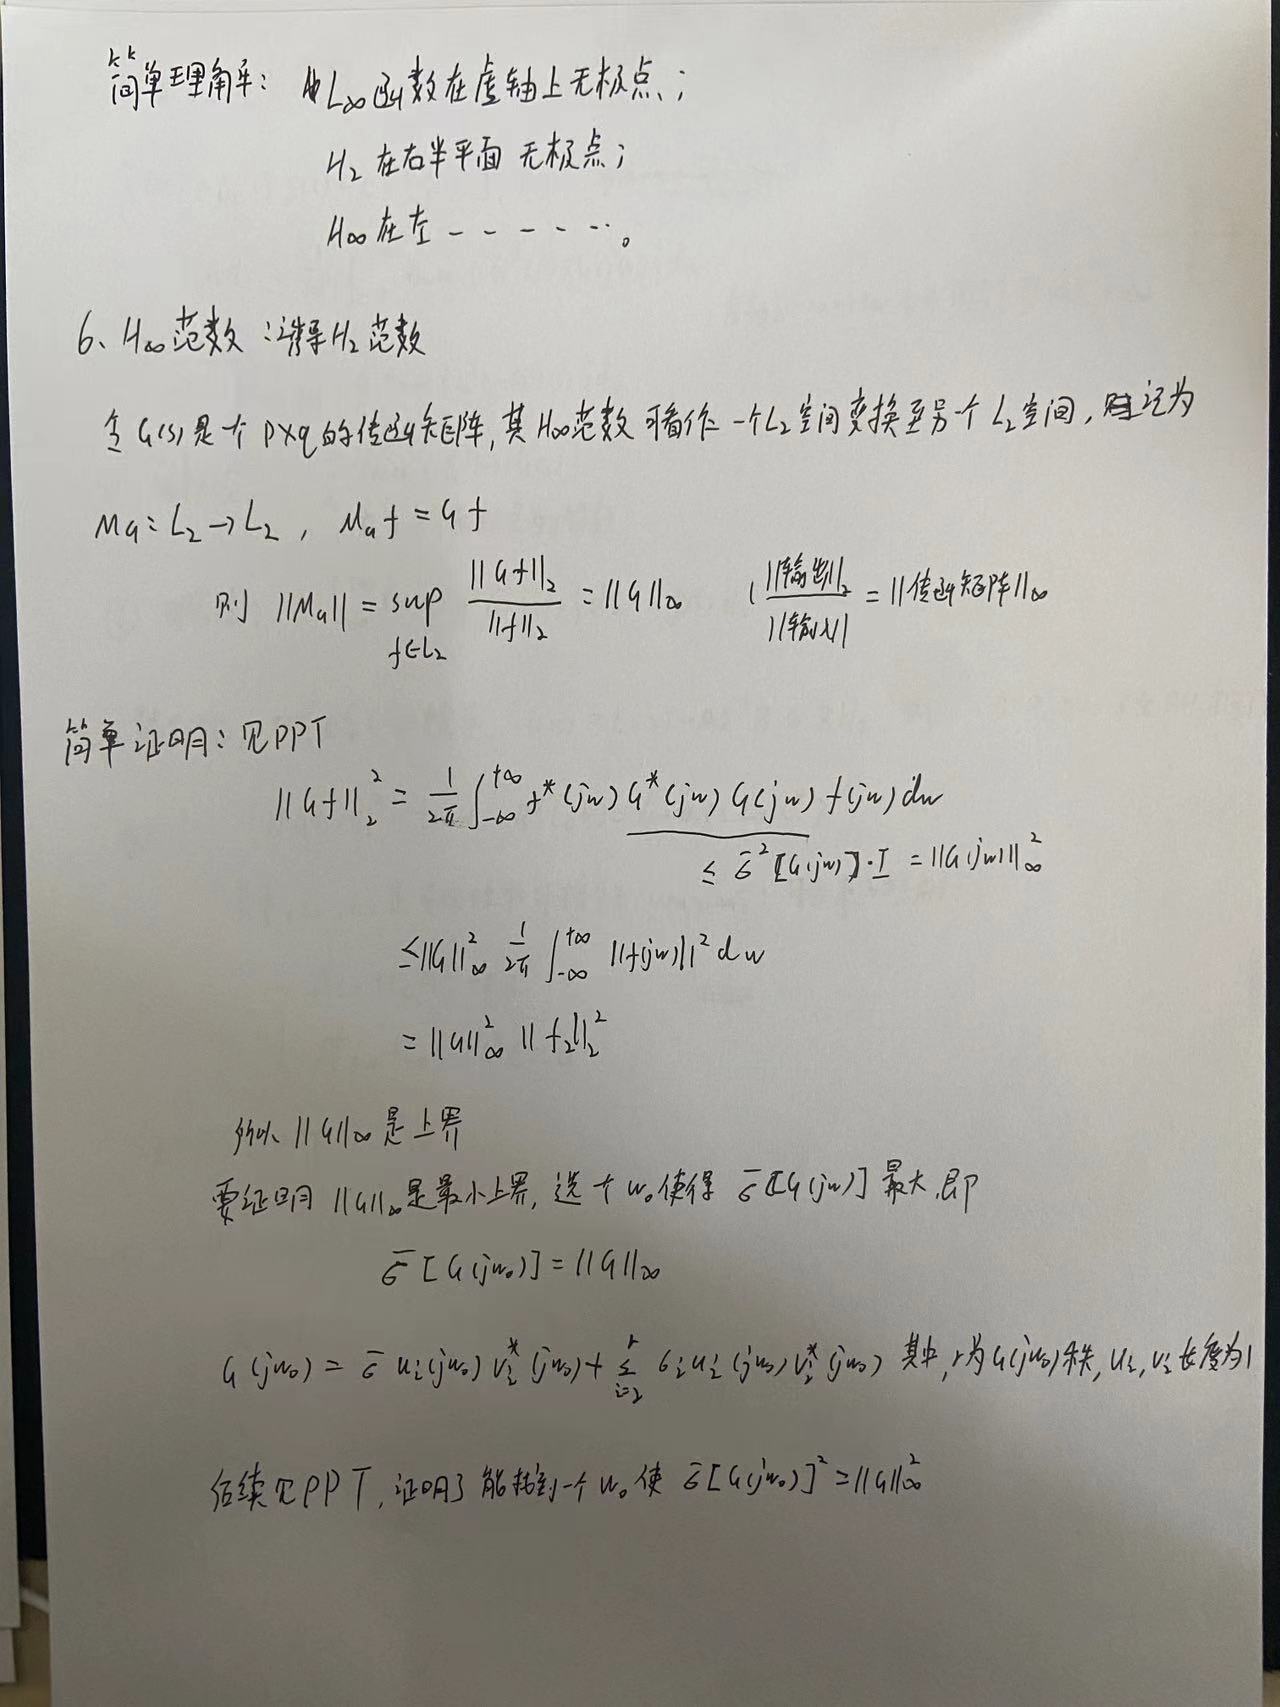 简单理解: L∞函数在虚轴上无极点;
H₂ 在右半平面 无极点;
H∞ 在左 - - - - - -。
6、H∞范数:诱导H₂范数
令 G(s) 是个 p×q 的传函矩阵, 其 H∞范数 可看作 一个L₂空间变换至另一个 L₂空间, 记为
M_G: L₂→L₂, M_G f = G f
则 ||M_G|| = sup_{f∈L₂} ||Gf||₂ / ||f||₂ = ||G||∞ ( ||输出||₂ / ||输入|| = ||传函矩阵||∞
简单证明: 见PPT
||Gf||₂² = 1/2π ∫_{-∞}^{+∞} f*(jw) G*(jw) G(jw) f(jw) dw
≤ σ̄²[G(jw)]·I = ||G(jw)||∞²
≤ ||G||∞² 1/2π ∫_{-∞}^{+∞} ||f(jw)||² dw
= ||G||∞² ||f₂||₂²
所以 ||G||∞ 是上界
要证明 ||G||∞ 是最小上界, 选个 w₀ 使得 σ̄[G(jw)] 最大, 即
σ̄[G(jw₀)] = ||G||∞
G(jw₀) = σ̄ u_i(jw₀) v_i*(jw₀) + Σ_{i=2}^{r} σ_i u_i(jw₀) v_i*(jw₀) 其中, r为G(jw₀)秩, u_i, v_i 长度为1
后续见PPT, 证明了能找到一个 w₀ 使 σ̄[G(jw₀)]² = ||G||∞²